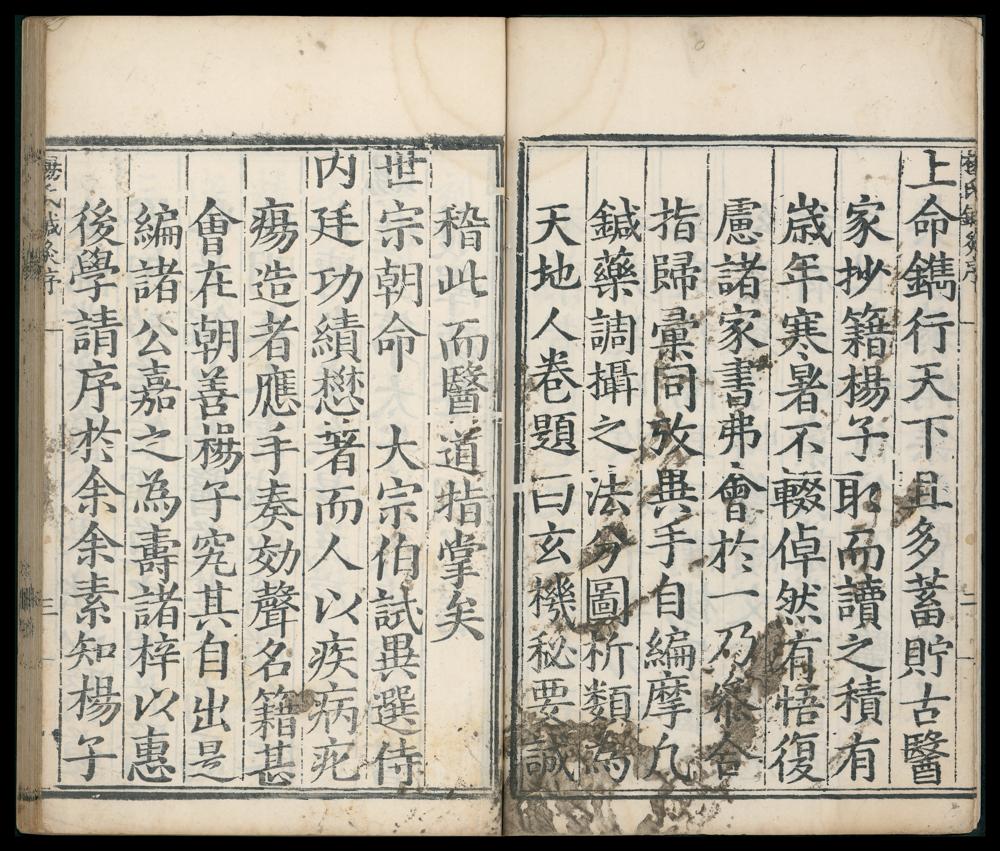 上命鐫行天下且多蓄貯古醫
家抄籍楊子取而讀之積有
歲年寒暑不輟倬然有悟復
慮諸家書弗會於一乃叅合
指歸彚同攷異手自編摩凢
鍼藥調攝之法分圖析類為
天地人卷題曰玄機秘要誠
稽此而醫道指掌矣
世宗朝命大宗伯試異選侍
內廷功績懋著而人以疾病疕
瘍造者應手奏効聲名籍甚
會在朝善楊子究其自出是
編諸公嘉之為壽諸梓以惠
後學請序於余余素知楊子
楊氏鍼灸序
三